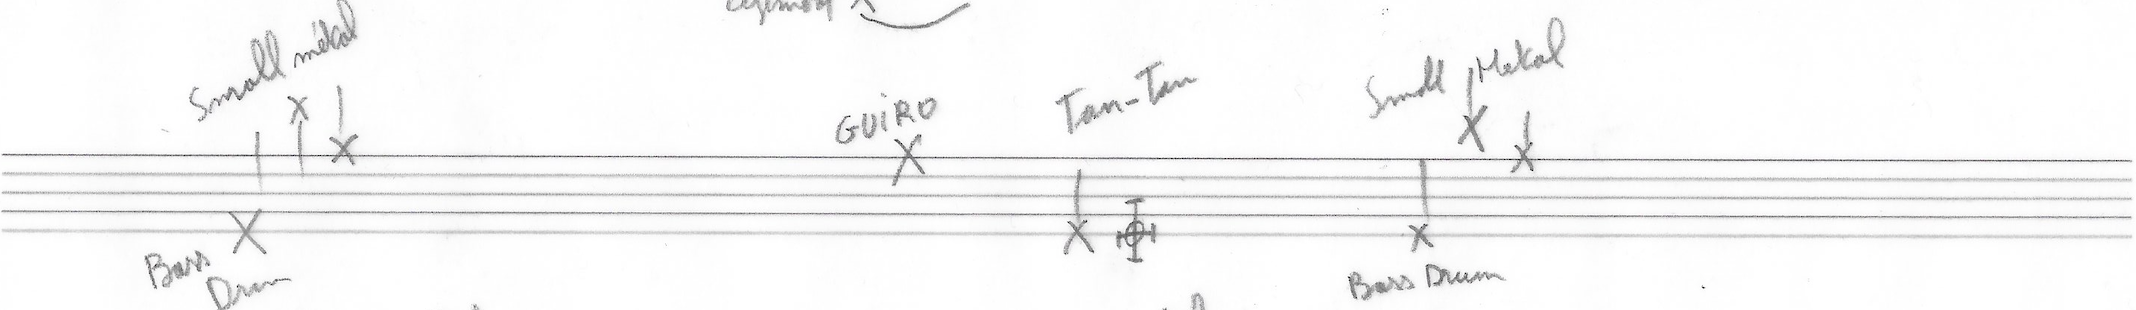 Small métal
GUiRO
Tam-Tam
Small Metal
Bass
Drum
Bass Drum